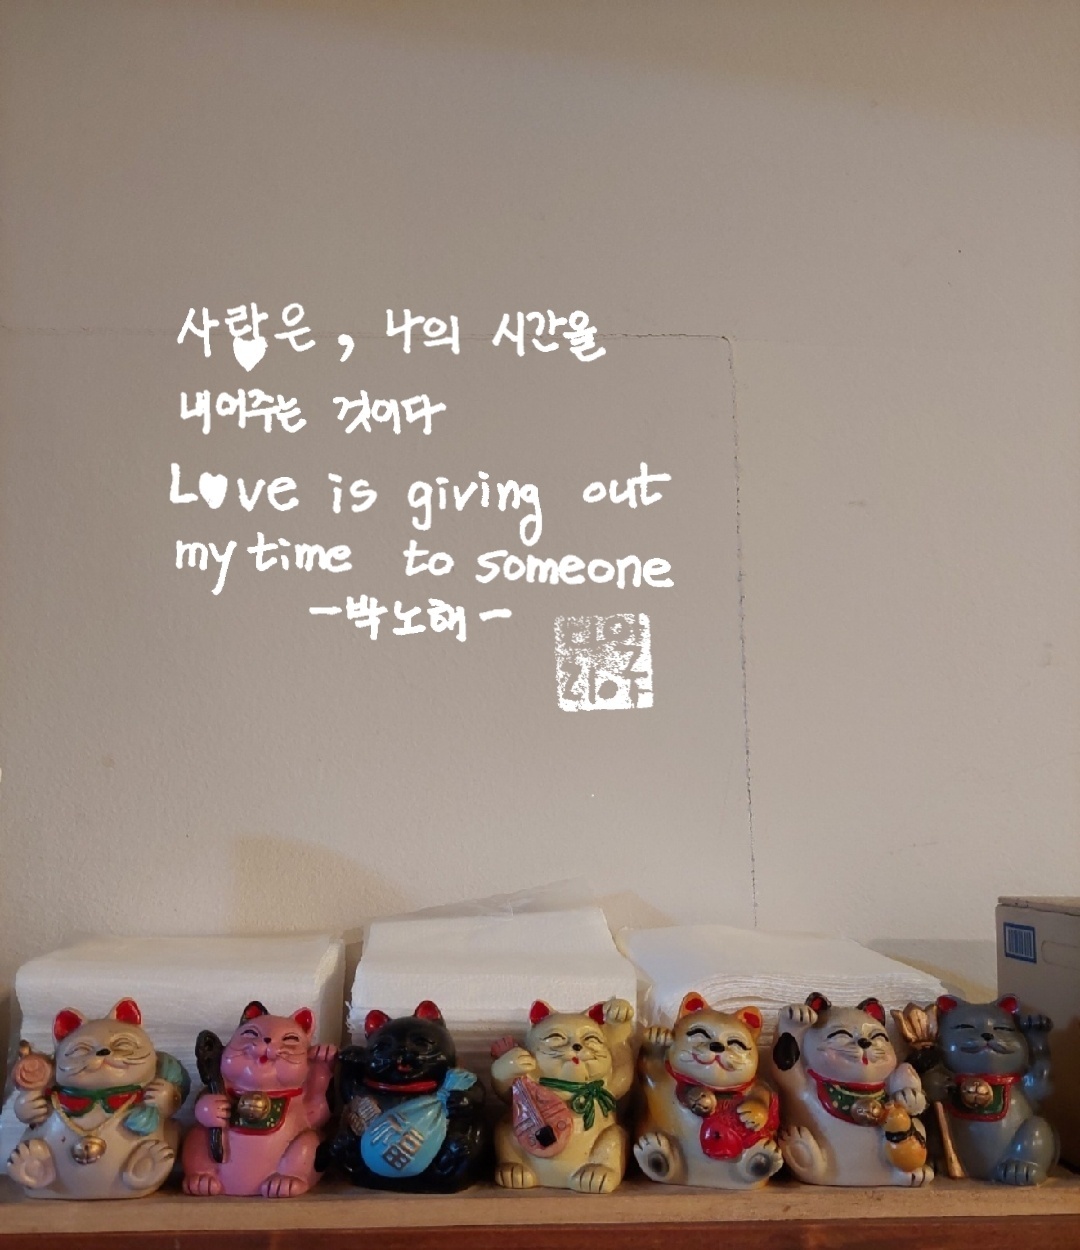 사랑은, 나의 시간을
내어주는 것이다
Love is giving out
my time to someone
-박노해-